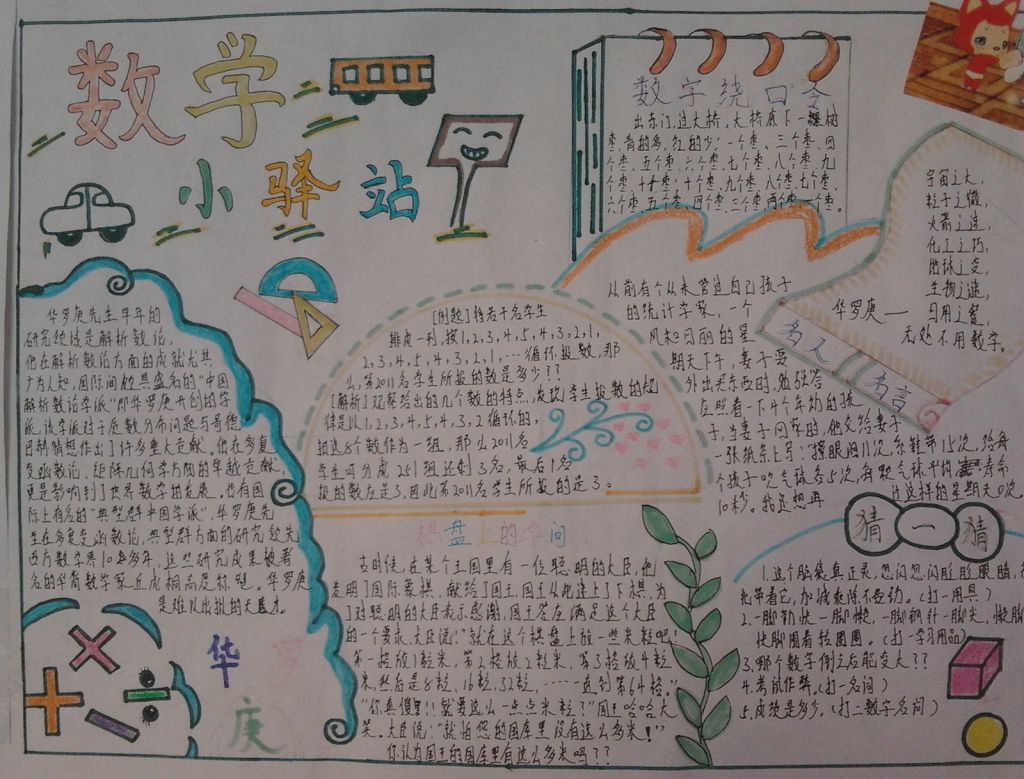 数学
小驿站
数字绕口令
出东门,过大桥,大桥底下一棵树
枣,青的多,红的少;一个枣、三个枣、四
个枣、五个枣、六个枣、七个枣、八个枣、九
个枣、十个枣、十个枣、九个枣、八个枣、七个枣、
六个枣、五个枣、四个枣、三个枣、两个枣、一个枣。
宇宙之大,
粒子之微,
火箭之速,
化工之巧,
地球之变,
生物之谜,
日用之繁,
无处不用数学。
华罗庚——
名人
名言
华罗庚先生早年的
研究领域是解析数论,
他在解析数论方面的成就尤其
广为人知,国际间颇具盛名的"中国
解析数论学派"即华罗庚开创的学
派,该学派对于质数分布问题与哥德
巴赫猜想作出了许多重大贡献。他在多复
变函数论,矩阵几何学方面的卓越贡献,
更是影响到了世界数学的发展。也有国
际上有名的"典型群中国学派",华罗庚先
生在多复变函数论,典型群方面的研究领先
西方数学界10多年,这些研究成果被著
名的华裔数学家丘成桐高度称赞。华罗庚
是难以比拟的天才。
华
罗
庚
[例题]有若干名学生
排成一列,按1,2,3,4,5,4,3,2,1,
2,3,4,5,4,3,2,1,…循环报数,那
么,第2011名学生所报的数是多少??
[解析]观察给出的几个数的特点,发现学生报数的规
律是以1,2,3,4,5,4,3,2循环的,
把这8个数作为一组,那么2011名
学生可分成251组还剩3名,最后1名
报的数应是3,因此第2011名学生所报的是3。
从前有个从未管过自己孩子
的统计学家,一个
风和日丽的星
期天下午,妻子要
外出买东西时,勉强答
应照看一下4个年幼的孩
子,当妻子回家时,他交给妻子
一张纸条上写:"擦眼泪11次,系鞋带15次,给每
个孩子吹气球各5次,每较气球平均寿命
10秒。我还想再
过这样的星期天0次。
棋盘上的学问
古时候,在某个王国里有一位聪明的大臣,他
发明了国际象棋,献给了国王,国王从此迷上了下棋,为
了对聪明的大臣表示感谢,国王答应满足这个大臣
的一个要求,大臣说:"就在这个棋盘上放一些米粒吧!
第一格放1粒米,第2格放2粒米,第3格放4粒
米,然后是8粒,16粒,32粒,……一直到第64格。"
"你真傻!!就要这么一点点米粒?"国王哈哈大
笑。大臣说:"就怕您的国库里没有这么多米!"
你认为国王的国库里有这么多米吗??
猜一猜
1.这个脑袋真正灵,忽闪忽闪眨眼睛,
把带着它,加减乘除不费劲。(打一用具)
2.一脚勤快一脚懒,一脚钢针一脚尖,懒脚
快脚围着转圈圈。(打一学习用品)
3.哪个数字倒立后能变大??
4.考试作弊。(打一名词)
5.成绩是多少。(打二数字名词)